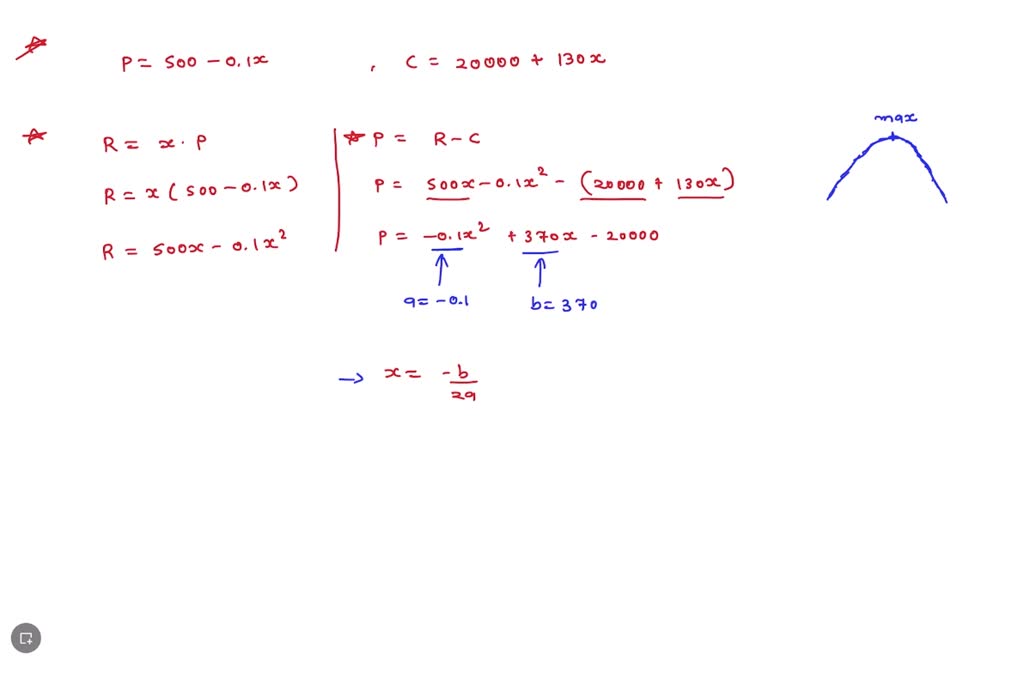 P = 500 - 0.1x , C = 20000 + 130x
R = x · P
R = x ( 500 - 0.1x )
R = 500x - 0.1x²
P = R - C
P = 500x - 0.1x² - (20000 + 130x)
P = -0.1x² + 370x - 20000
a = -0.1 b = 370
→ x = -b/2a
max